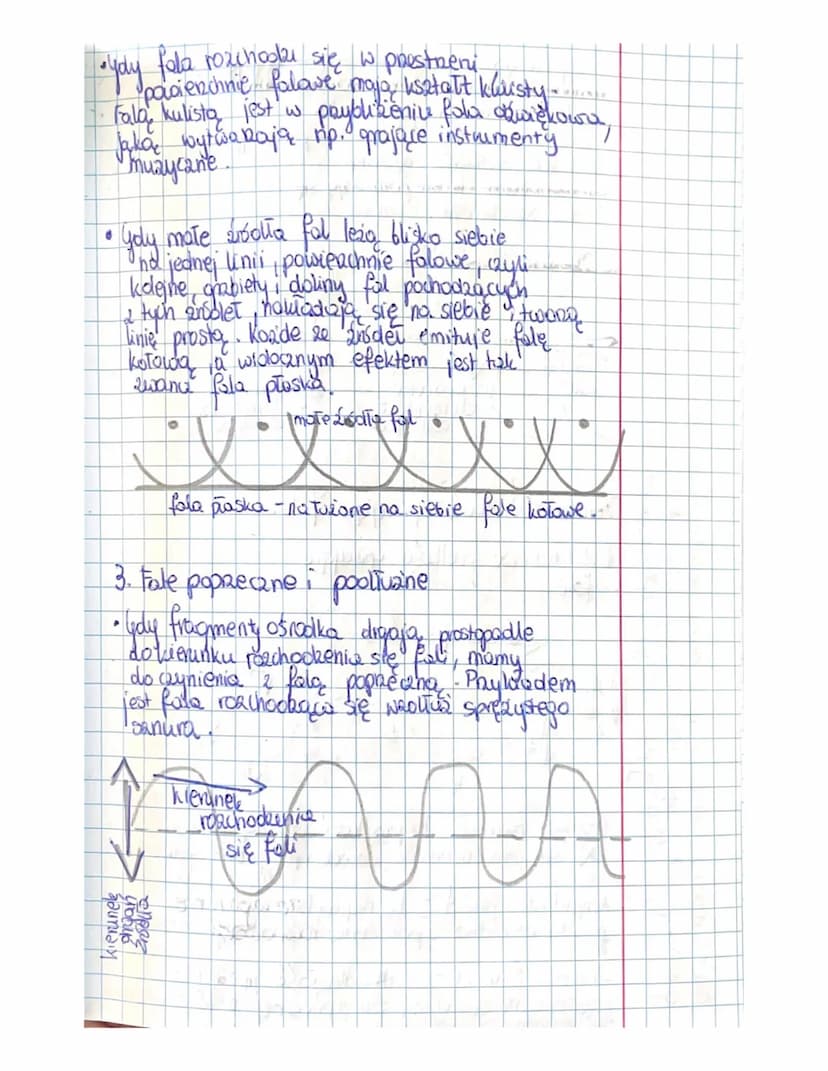 • Gdy fala rozchodzi się w przestrzeni
powierzchnie falowe mają kształt kulisty.
Falą kulistą jest w przybliżeniu fala dźwiękowa,
jaką wytwarzają np. grające instrumenty
muzyczne.
• Gdy małe źródła fal leżą blisko siebie
na jednej linii, powierzchnie falowe, czyli
kolejne grzbiety i doliny fal pochodzących
z tych źródeł, nakładają się na siebie i tworzą
linię prostą. Każde ze źródeł emituje falę
kołową, a widocznym efektem jest tak
zwana fala płaska.
małe źródła fal
fala płaska - nałożone na siebie fale kołowe.
3. Fale poprzeczne i podłużne
• Gdy fragmenty ośrodka drgają prostopadle
do kierunku rozchodzenia się fali, mamy
do czynienia z falą poprzeczną. Przykładem
jest fala rozchodząca się wzdłuż sprężystego
sznura.
kierunek
rozchodzenia
się fali
kierunek
drgań
źródła